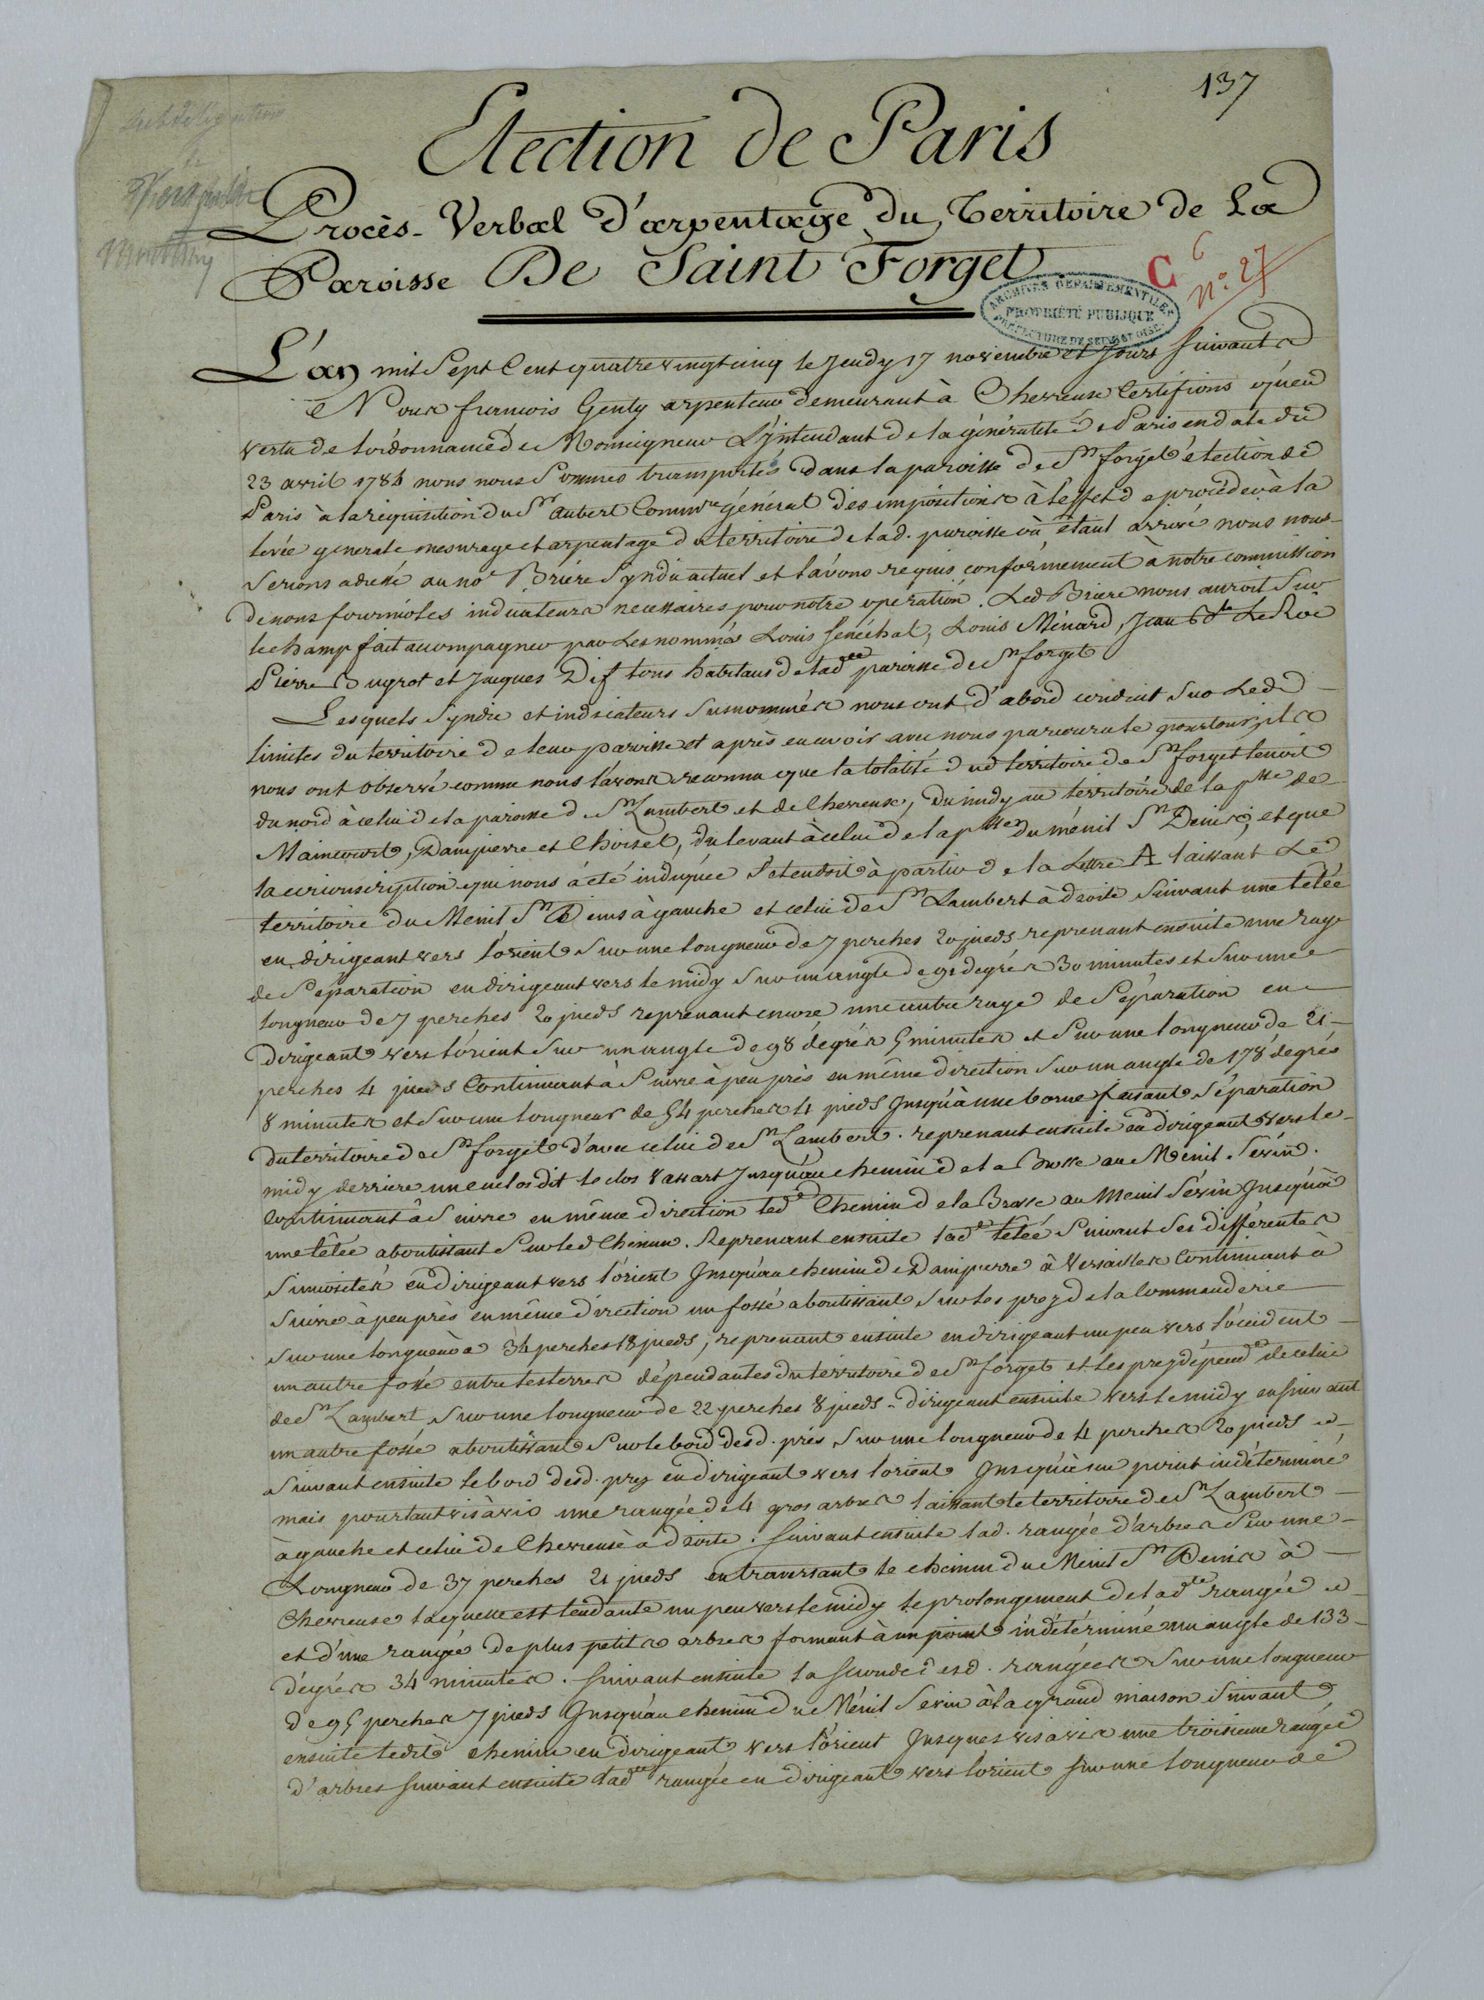 137
Subdélégation
de
Versailles
Montlhéry
Election de Paris
Procès-Verbal d'arpentage du Territoire de La
Paroisse De Saint Forget
C 6
n.° 27
ARCHIVES DÉPARTEMENTALES
PROPRIÉTÉ PUBLIQUE
PRÉFECTURE DE SEINE ET OISE
L'an mil Sept Cent quatre vingt cinq le Jeudy 17 novembre et Jours suivants
Nous françois Genty arpenteur demeurant à Chevreuse Certifions qu'en
vertu de l'ordonnance de Monseigneur L'Intendant de la généralité de Paris en date du
23 avril 1784 nous nous Sommes transportés dans la paroisse de St forget élection de
Paris à la réquisition du Sr aubert Commre général des impositions à l'effet de procéder à la
levée generale mesurage et arpentage du territoire de lad. paroisse où étant arrivé nous nous
Serions adressé au né Briére Syndic actuel et l'avons requis conformément à notre commission
de nous fournir les indicateurs necessaires pour notre opération. Led Briere nous auroit Sur
le champ fait accompagner par Les nommés Louis Senéchal, Louis Ménard, Jean Bte Le Roi
Pierre Bugrot et Jacques Dif tous habitans de ladte paroisse de St forget
Lesquels Syndic et indicateurs Susnommés nous ont d'abord conduit Sur Led
limites du territoire de leur paroisse et après en avoir avec nous parcouru le pourtour, ils
nous ont observé comme nous l'avons reconnu que la totalité dud territoire de St forget tenoit
du nord à celui de la paroisse de St Lambert et de Chevreuse, du midy au territoire de la psse de
Maincourt, Dampierre et Choisel, du levant à celui de la psse du ménil St Denis; et que
la circonscription qui nous a été indiquée S'etendoit à partir de la Lettre A laissant Le
territoire du Menil St Denis à gauche et celui de St Lambert à droite Suivant une tétée
en dirigeant vers l'orient Sur une longueur de 7 perches 20 pieds reprenant ensuite une raye
de Séparation en dirigeant vers le midy Sur un angle de 91 degrés 30 minutes et Sur une
longueur de 7 perches 20 pieds reprenant encore une autre raye de Séparation en
dirigeant vers l'orient Sur un angle de 98 dégrés 5 minutes et Sur une longueur de 21
perches 4 pieds Continuant à Suivre à peu près en même direction Sur un angle de 178 dégrés
8 minutes et Sur une longueur de 54 perches 4 pieds Jusqu'à une borne faisant Séparation
du territoire de St forget d'avec celui de St Lambert. reprenant ensuite en dirigeant vers le
midy derriere un enclos dit le clos Vassart Jusqu'au chemin de la Brosse au Ménil Sévin.
Continuant à Suivre en même direction led Chemin de la Brosse au Menil Sévin Jusqu'à
une tétée aboutissant Sur led Chemin. Reprenant ensuite lade tetée Suivant Ses différentes
Sinuosités en dirigeant vers l'orient Jusqu'au chemin de Dampierre à Versailles Continuant à
Suivre à peu près en même direction un fossé aboutissant Sur les prez de la Commanderie
Sur une longueur à 34 perches 18 pieds, reprenant ensuite en dirigeant un peu vers l'occident
un autre fossé entre les terres dépendantes du territoire de St forget et les prez dépendts de celui
de St Lambert, Sur une longueur de 22 perches 8 pieds. dirigeant ensuite vers le midy en Suivant
un autre fossé aboutissant Sur le bord desd. prés Sur une longueur de 4 perches 20 pieds
Suivant ensuite le bord desd. prez en dirigeant vers l'orient Jusqu'à un point indéterminé
mais pourtant vis à vis une rangée de 4 gros arbres laissant le territoire de St Lambert
à gauche et celui de Chevreuse à droite. Suivant ensuite lad. rangée d'arbres Sur une
Longueur de 37 perches 21 pieds en traversant le chemin du Ménil St Denis à
Chevreuse laquelle est tendante un peu vers le midy le prolongement de ladte rangée
et d'une rangée de plus petits arbres formant à un point indéterminé un angle de 133
dégrés 34 minutes. Suivant ensuite la Seconde desd. rangées Sur une longueur
de 95 perches 7 pieds Jusqu'au chemin du Ménil Sevin à la grand maison Suivant
ensuite ledit chemin en dirigeant vers l'orient Jusques vis à vis une troisieme rangée
d'arbres Suivant ensuite ladte rangée en dirigeant vers l'orient Sur une longueur de